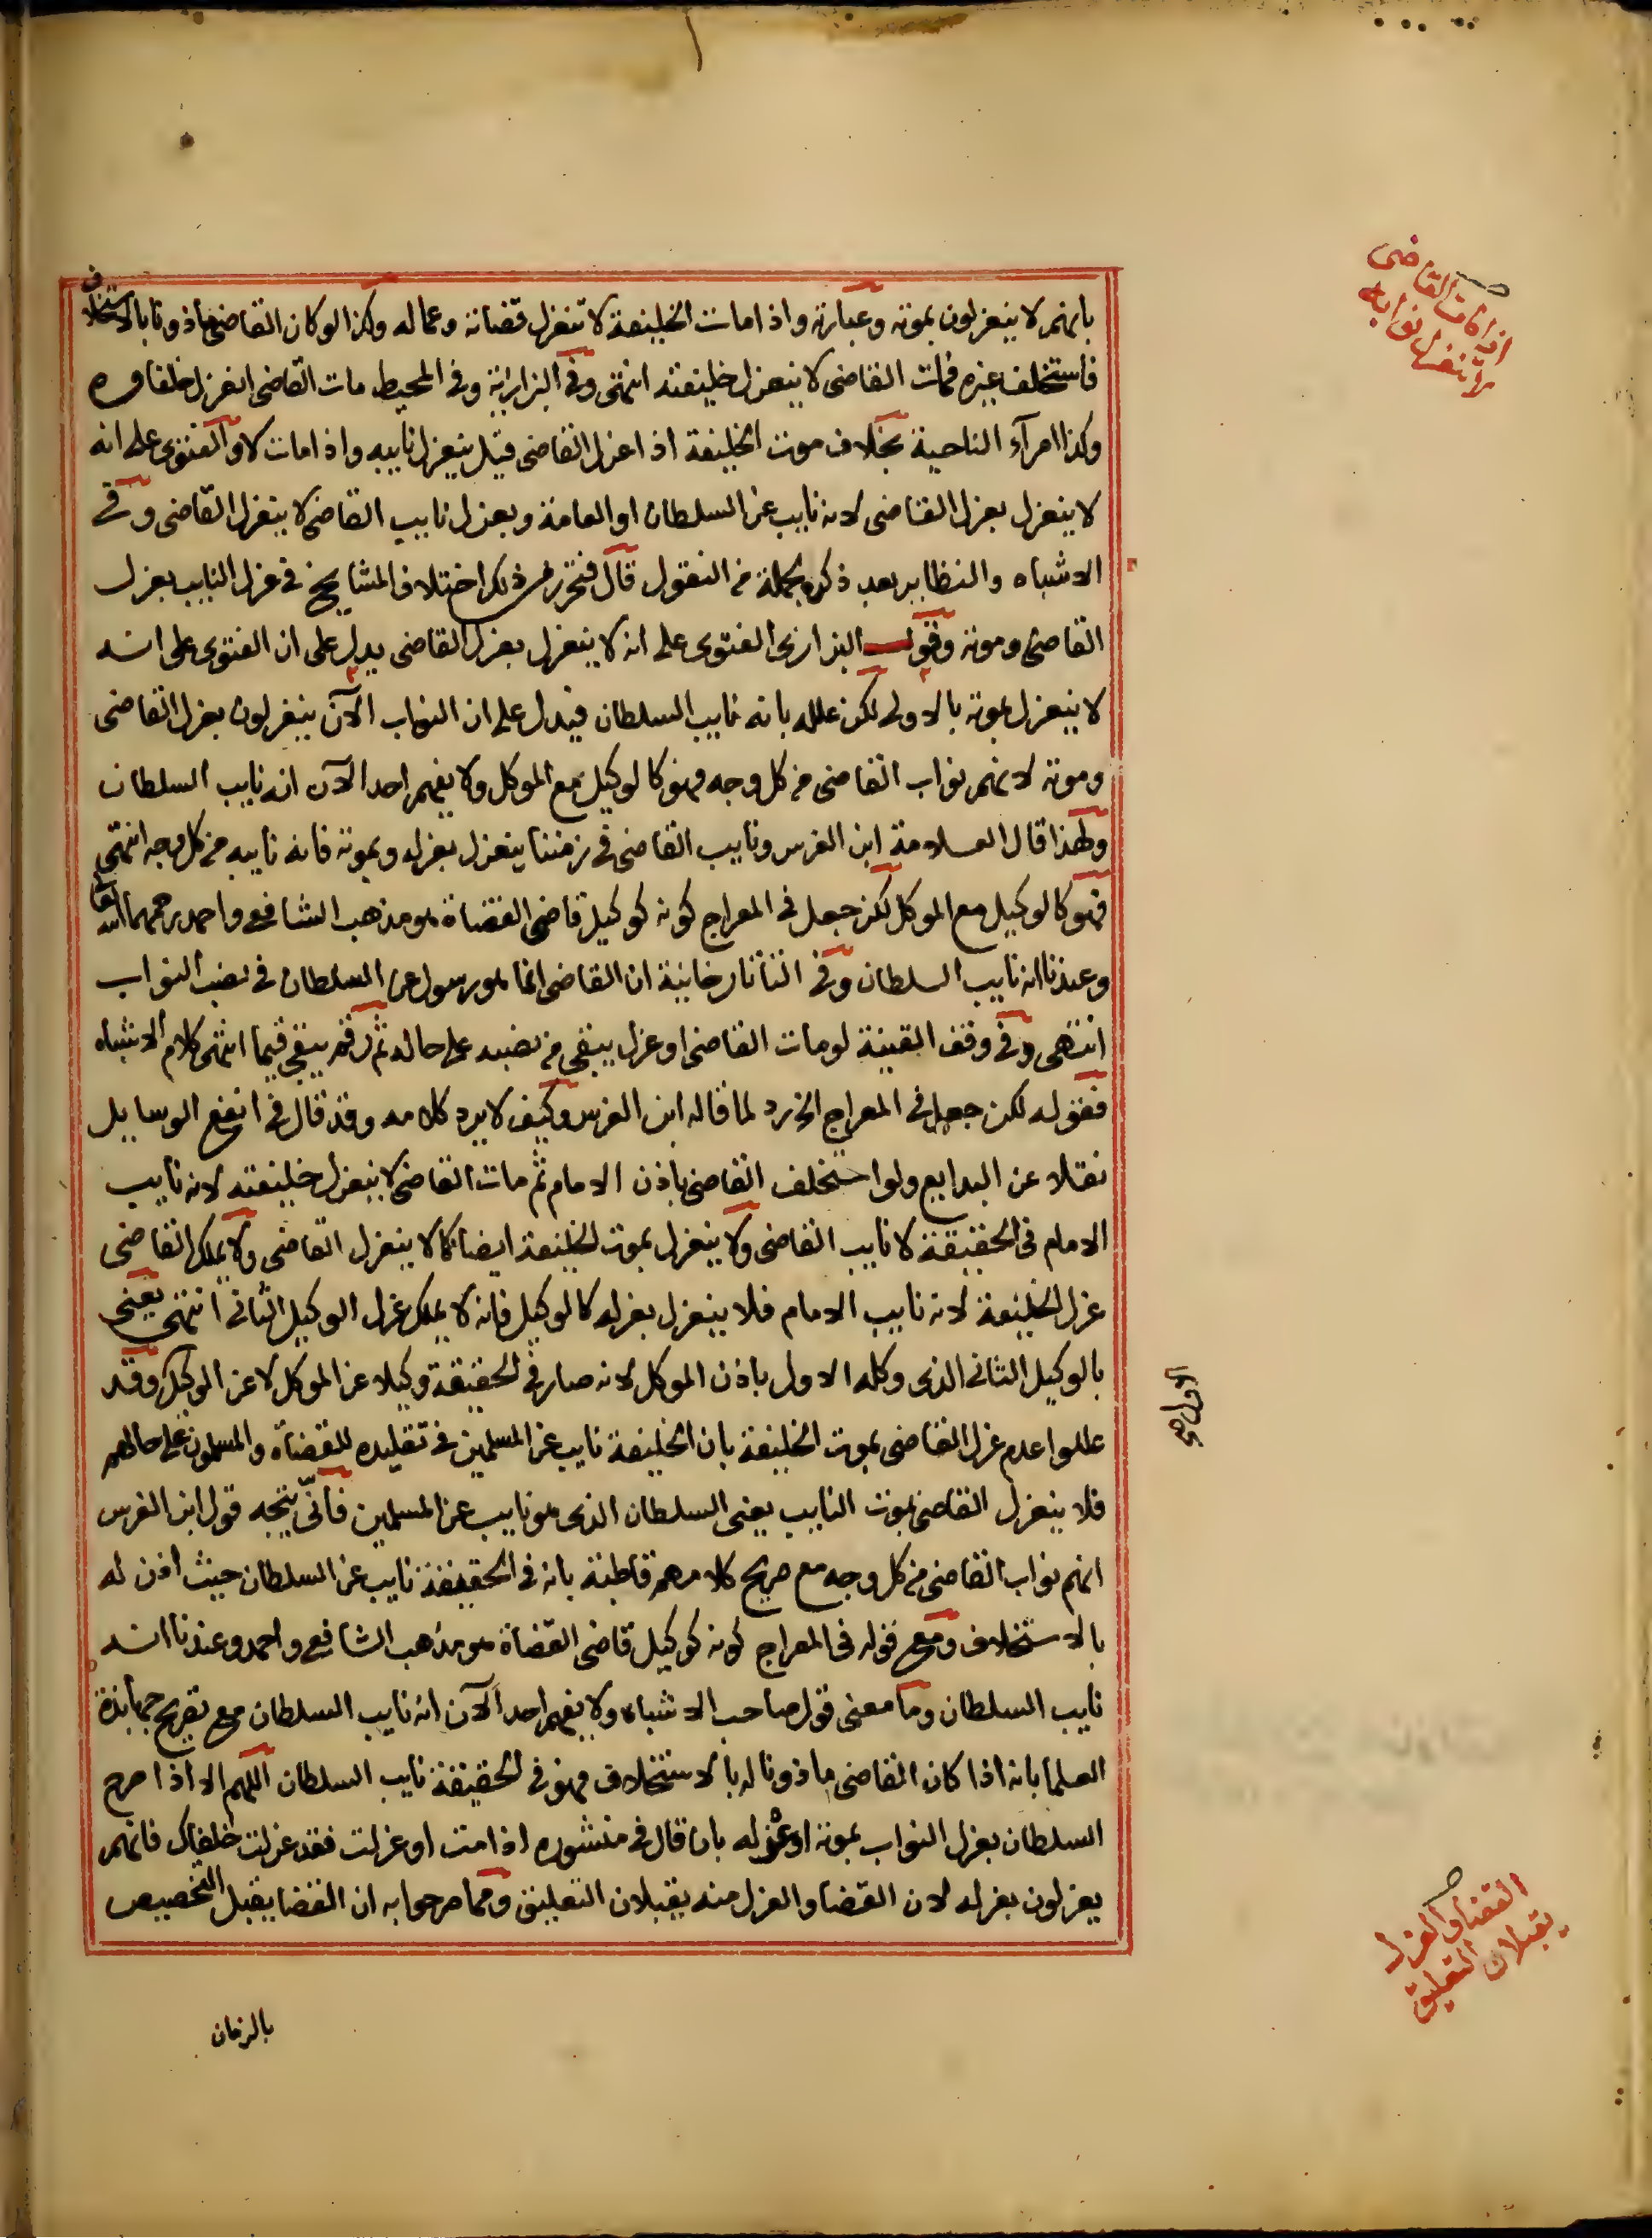 بانهم لا ينعزلون بموته وعبارته واذا مات الخليفة لا تنعزل قضاته وعماله وكذا لو كان القاضي ماذونا بالاستخلاف
فاستخلف غيره فمات القاضي لا ينعزل خليفته انتهى وفي البزازية وفي المحيط مات القاضي انعزل خلفاوه
وكذا امرآء الناحية بخلاف موت الخليفة اذا عزل القاضي قيل ينعزل نايبه واذا مات لا والفتوى على انه
لا ينعزل بعزل القاضي لانه نايب عن السلطان او العامة وبعزل نايب القاضي لا ينعزل القاضي وفي
الاشباه والنظاير بعد ذكره جملة من النقول قال فتحرر من ذلك اختلاف المشايخ في عزل النايب بعزل
القاضي وموته وقول البزازي الفتوى على انه لا ينعزل بعزل القاضي يدل على ان الفتوى على انه
لا ينعزل بموته بالاولى لكن علله بانه نايب السلطان فيدل على ان النواب الآن ينعزلون بعزل القاضي
وموته لانهم نواب القاضي من كل وجه فهو كالوكيل مع الموكل ولا يفهم احد الآن انه نايب السلطان
ولهذا قال العلامة ابن الغرس ونايب القاضي في زمننا ينعزل بعزله وبموته فانه نايبه من كل وجه انتهى
فهو كالوكيل مع الموكل لكن جعل في المعراج كونه كوكيل قاضي القضاة هو مذهب الشافعي واحمد رحمهما الله تعالى
وعندنا انه نايب السلطان وفي التاتارخانية ان القاضي انما هو رسول عن السلطان في نصب النواب
انتهى وفي وقف القنية لو مات القاضي او عزل يبقى من نصبه على حاله ثم رقم يبقى قيما انتهى كلام الاشباه
فقوله لكن جعل في المعراج الخ رد لما قاله ابن الغرس وكيف لا يرد كلامه وقد قال في انفع الوسايل
نقلا عن البدايع ولو استخلف القاضي باذن الامام ثم مات القاضي لا ينعزل خليفته لانه نايب
الامام في الحقيقة لا نايب القاضي ولا ينعزل بموت الخليفة ايضا كما لا ينعزل القاضي ولا يملك القاضي
عزل الخليفة لانه نايب الامام فلا ينعزل بعزله كالوكيل فانه لا يملك عزل الوكيل الثاني انتهى يعني
بالوكيل الثاني الذي وكله الاول باذن الموكل لانه صار في الحقيقة وكيلا عن الموكل لا عن الوكيل وقد
عللوا عدم عزل القاضي بموت الخليفة بان الخليفة نايب عن المسلمين في تقليده للقضاة والمسلمون على حالهم
فلا ينعزل القاضي بموت النايب يعني السلطان الذي هو نايب عن المسلمين فانّى يتجه قول ابن الغرس
انهم نواب القاضي من كل وجه مع صريح كلامهم قاطبة بانه في الحقيقة نايب عن السلطان حيث اذن له
بالاستخلاف ومع قوله في المعراج كونه كوكيل قاضي القضاة هو مذهب الشافعي واحمد وعندنا انه
نايب السلطان وما معنى قول صاحب الاشباه ولا يفهم احد الآن انه نايب السلطان مع تصريح جهابذة
العلما بانه اذا كان القاضي ماذونا له بالاستخلاف فهو في الحقيقة نايب السلطان اللهم الا اذا صرح
السلطان بعزل النواب بموته او عزله بان قال في منشوره اذا مت او عزلت فقد عزلت خلفاك فانهم
يعزلون بعزله لان القضا والعزل منه يقبلان التعليق ومما صرحوا به ان القضا يقبل التخصيص
بالزمان
اذا مات القاضي
لا تنعزل نوابه
الاول صح
القضا والعزل
يقبلان التعليق